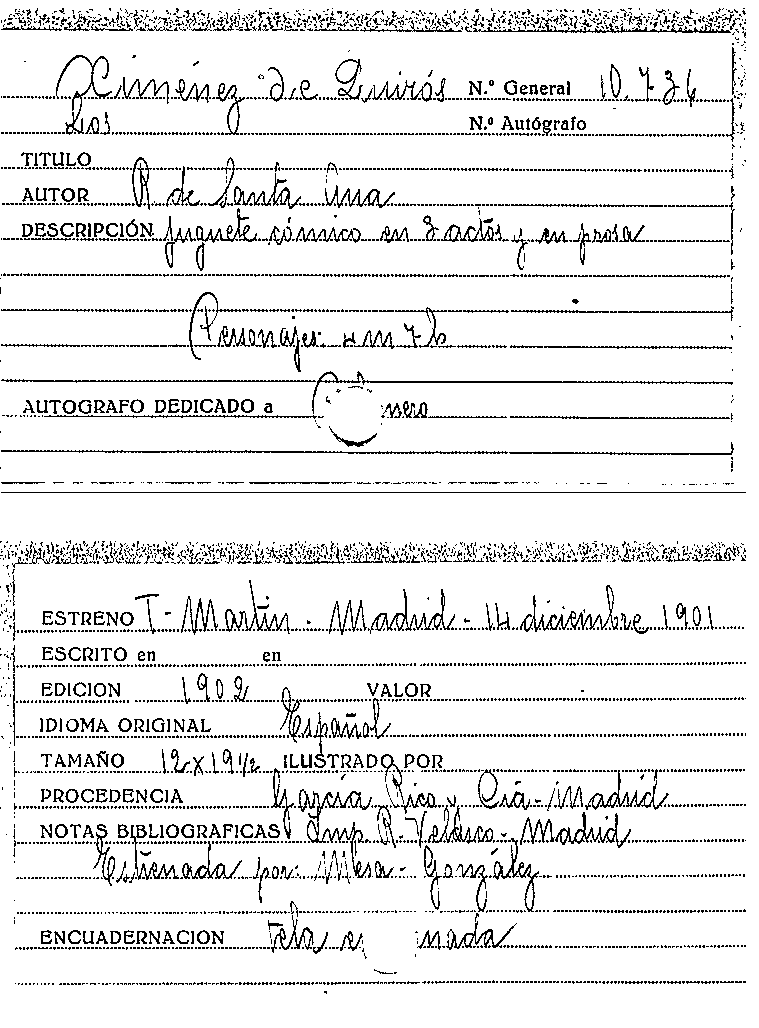 Ximénez de Quirós N.º General 10.736
Los N.º Autógrafo
TITULO
AUTOR R de Santa Ana
DESCRIPCIÓN juguete cómico en 3 actos y en prosa
Personajes: 4 m 7 h
AUTOGRAFO DEDICADO a
ESTRENO T- Martin - Madrid - 14 diciembre 1901
ESCRITO en en
EDICION 1902 VALOR
IDIOMA ORIGINAL Español
TAMAÑO 12 x 19 1/2 ILUSTRADO POR
PROCEDENCIA García Rico y Cia - Madrid
NOTAS BIBLIOGRAFICAS Imp. R. Velasco - Madrid
Estrenada por: Mesa - González
ENCUADERNACION Tela